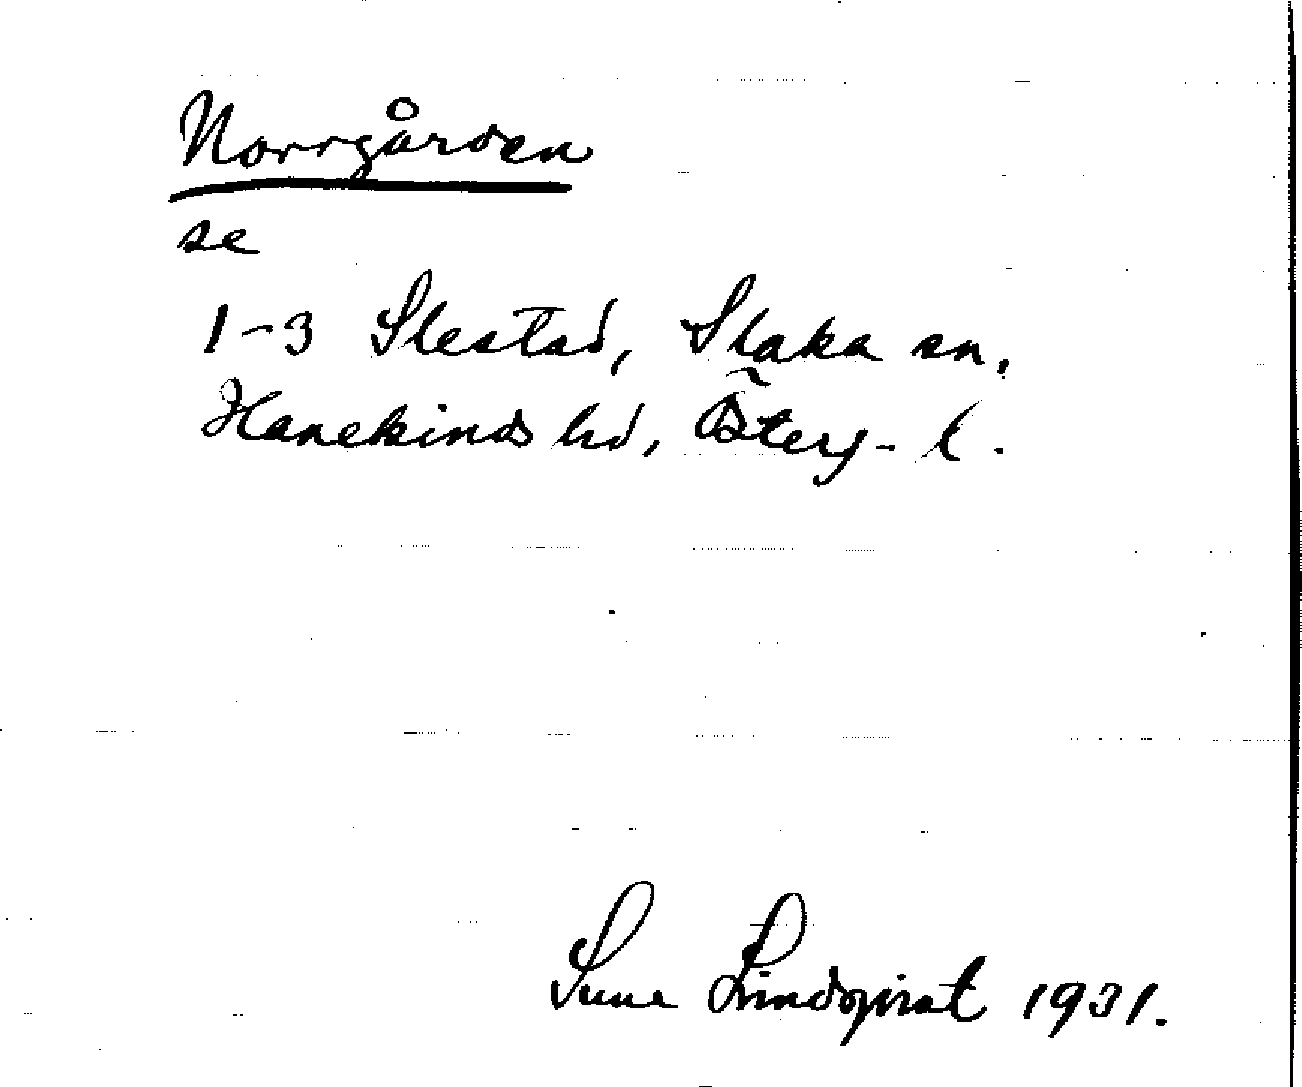 Norrgården
se
1-3 Slestad, Slaka sn,
Hanekinds hd, Österg- l.
Sune Lindqvist 1931.